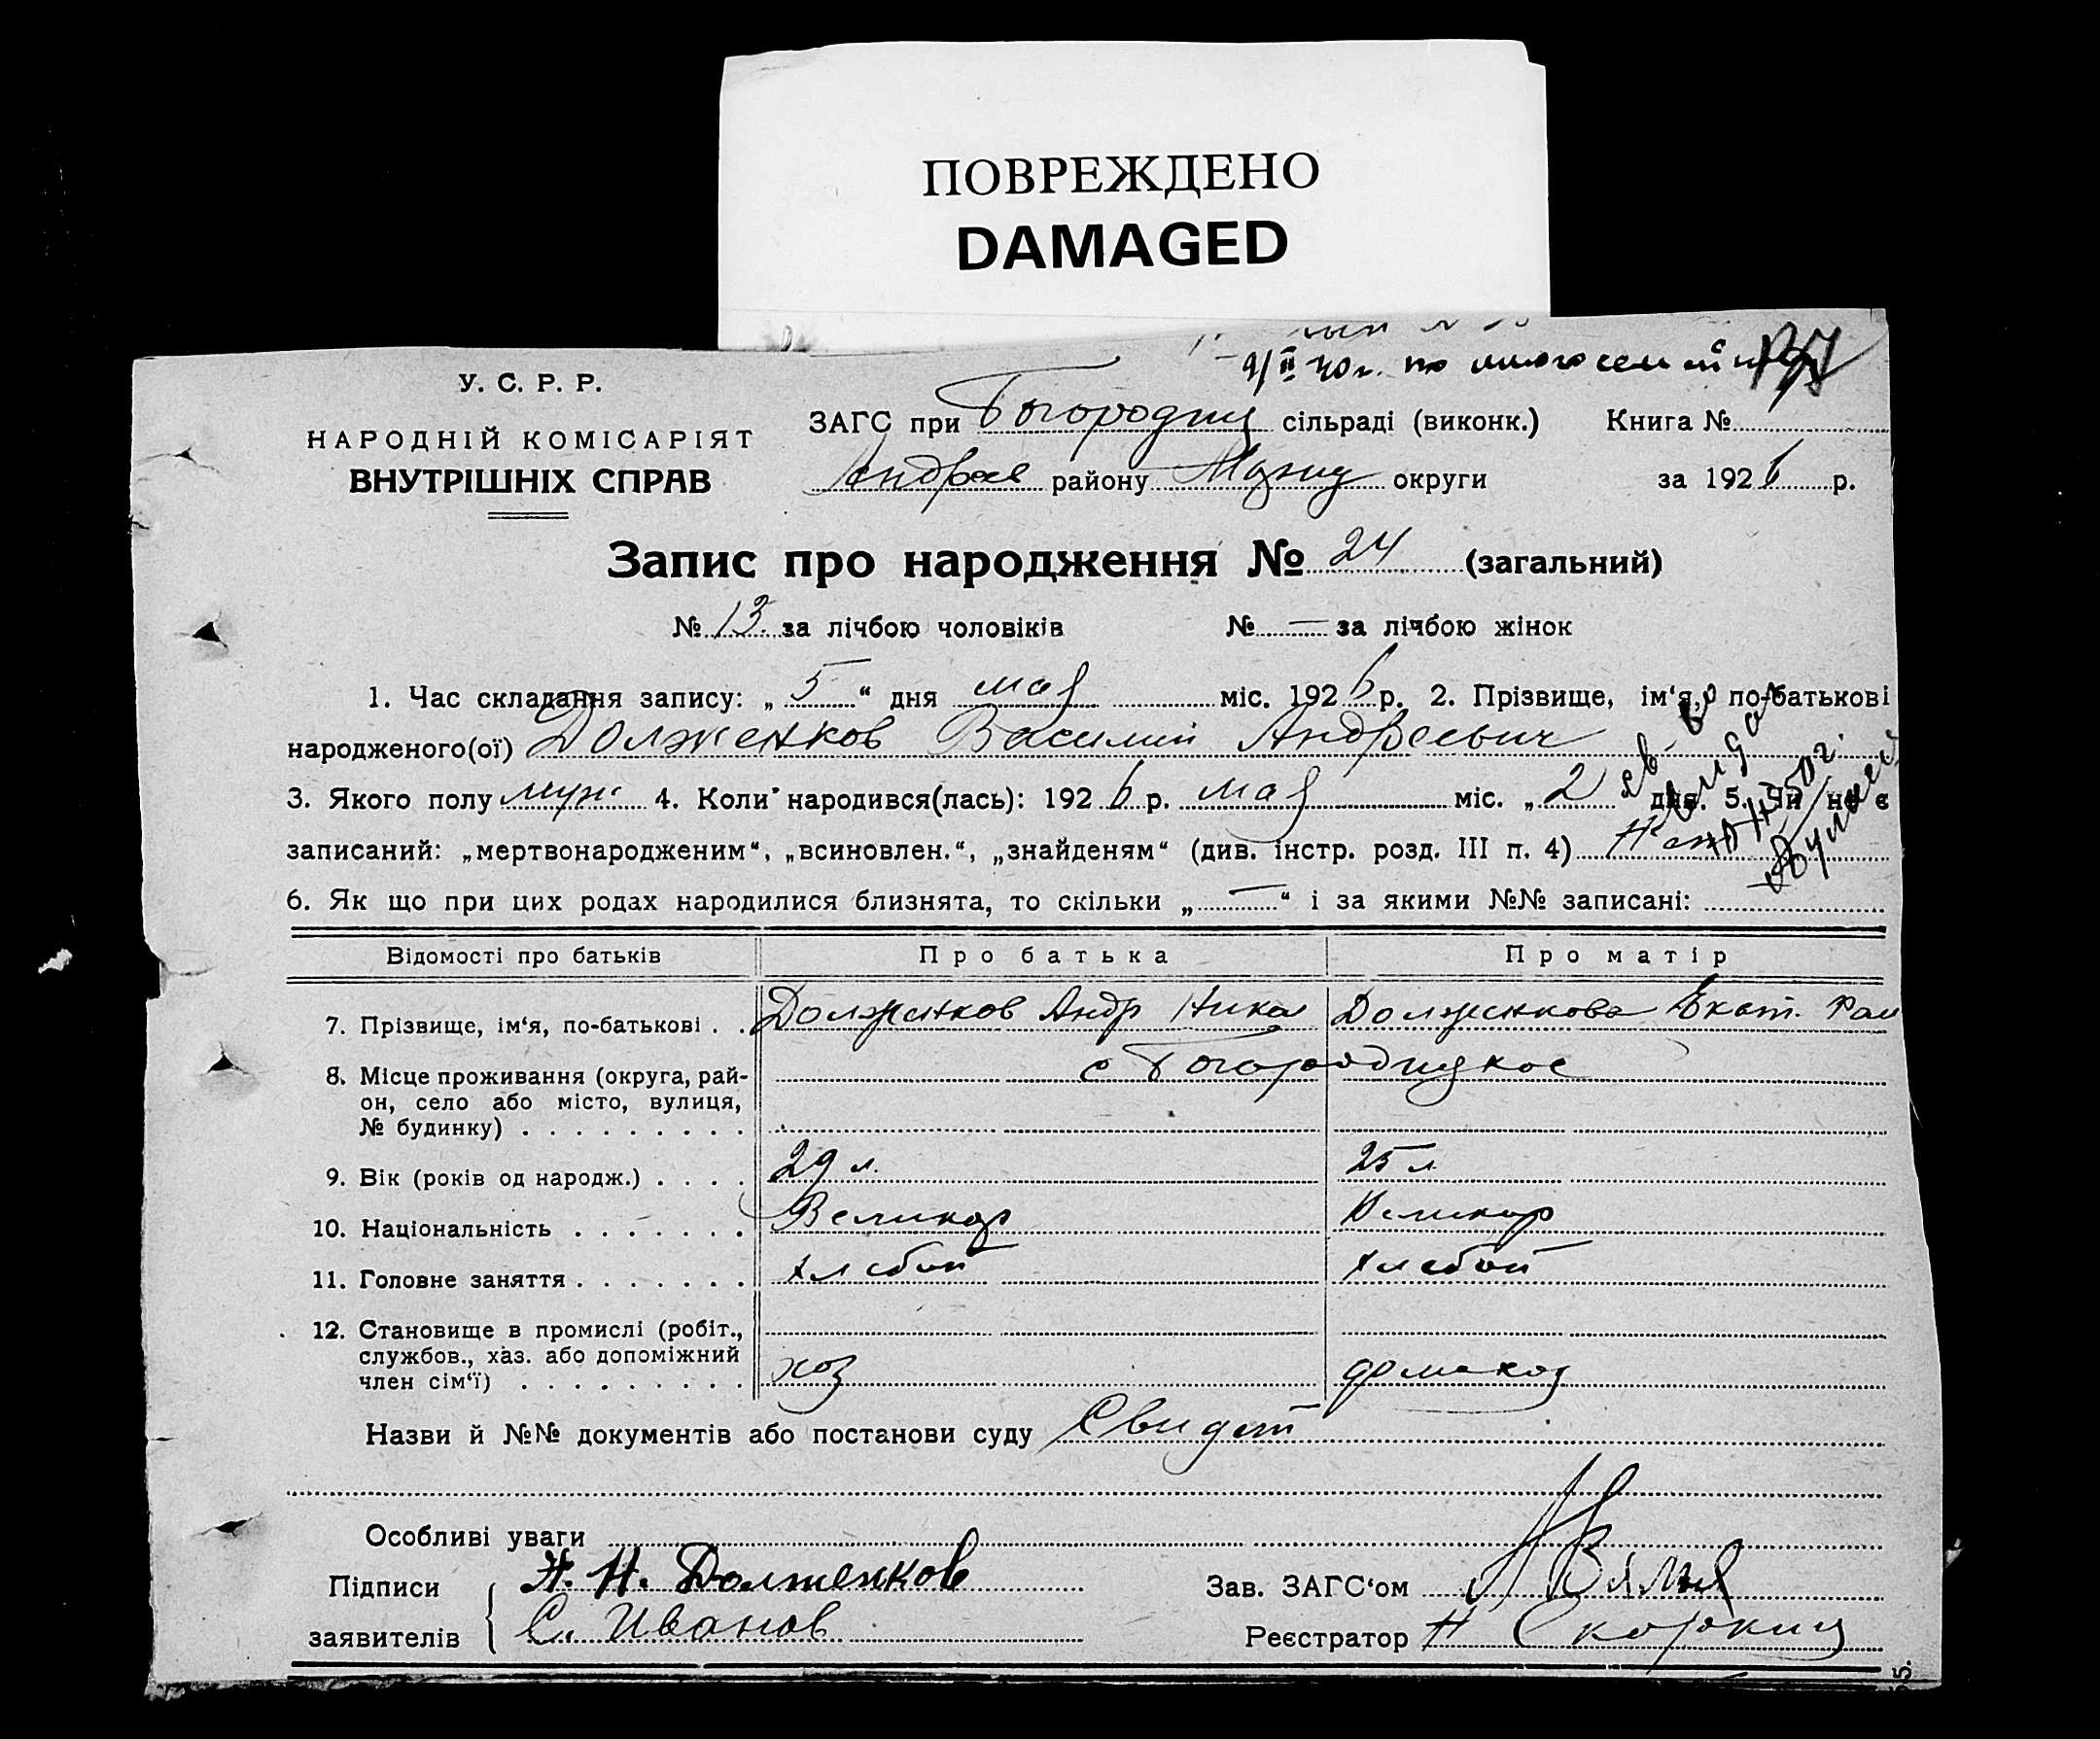 ПОВРЕЖДЕНО
DAMAGED
9/II 40 г. по многосемейн
У. С. Р. Р.
НАРОДНІЙ КОМІСАРІЯТ
ВНУТРІШНІХ СПРАВ
ЗАГС при Богородиц сільраді (виконк.) Книга №
Андрее району Мариу округи за 1926 р.
Запис про народження № 24 (загальний)
№ 13 за лічбою чоловіків № — за лічбою жінок
1. Час складання запису: „ 5 “ дня мая міс. 1926 р. 2. Прізвище, ім‘я, по-батькові
народженого(ої) Долженков Василий Андреевич
3. Якого полу муж 4. Коли народився(лась): 1926 р. мая міс. „ 2 “ дня. 5. Чи не є
записаний: „мертвонародженим“, „всиновлен.“, „знайденям“ (див. інстр. розд. III п. 4)
6. Як що при цих родах народилися близнята, то скільки „ — “ і за якими №№ записані:
Відомості про батьків Про батька Про матір
7. Прізвище, ім‘я, по-батькові . . Долженков Андр Ник Долженкова Екат.
8. Місце проживання (округа, рай-
он, село або місто, вулиця,
№ будинку) . . . . . . . . .
с Богородицкое
9. Вік (років од народж.) . . . . 29 л. 25 л
10. Національність . . . . . . . Великор Великор
11. Головне заняття . . . . . . . хлебоп хлебоп
12. Становище в промислі (робіт.,
службов., хаз. або допоміжний
член сім‘ї) . . . . . . . . . хоз домохоз
Назви й №№ документів або постанови суду Свидет
Особливі уваги
Підписи А. Н. Долженков Зав. ЗАГС‘ом
заявителів С. Иванов Реєстратор Н Скоркин